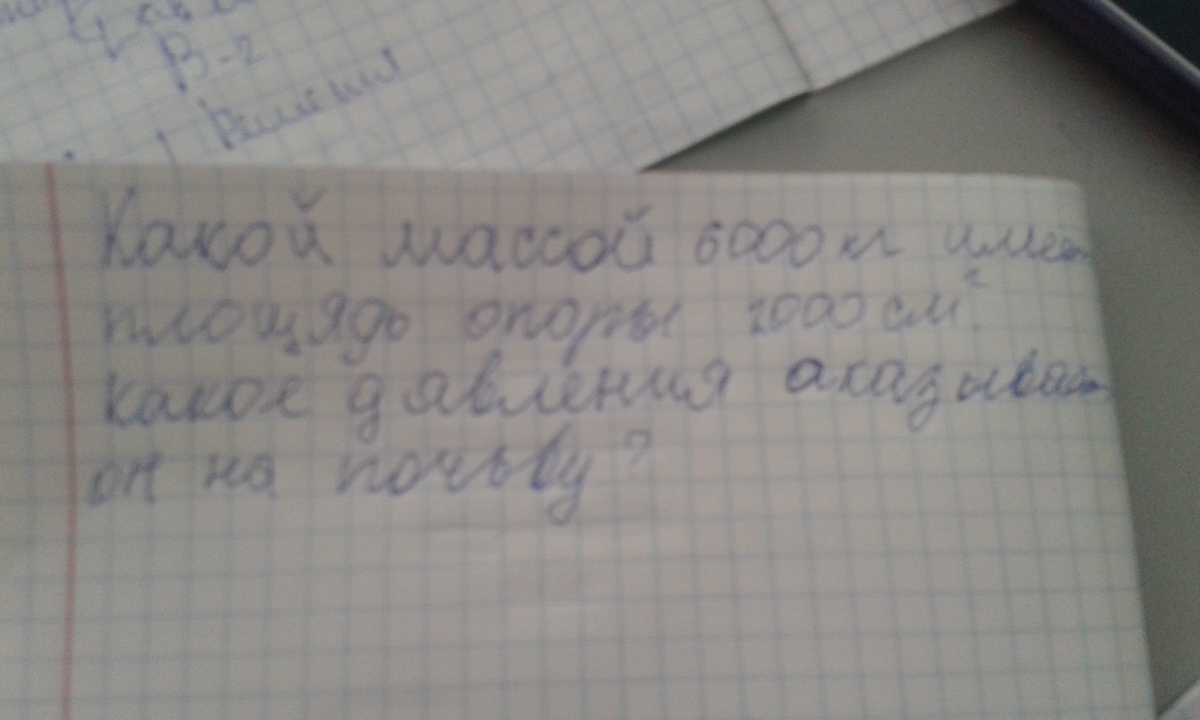 В-2
Решения
Какой массой 6000 кг имеет
площядь опоры 2000 см².
какое давления аказывает
он на почьву?